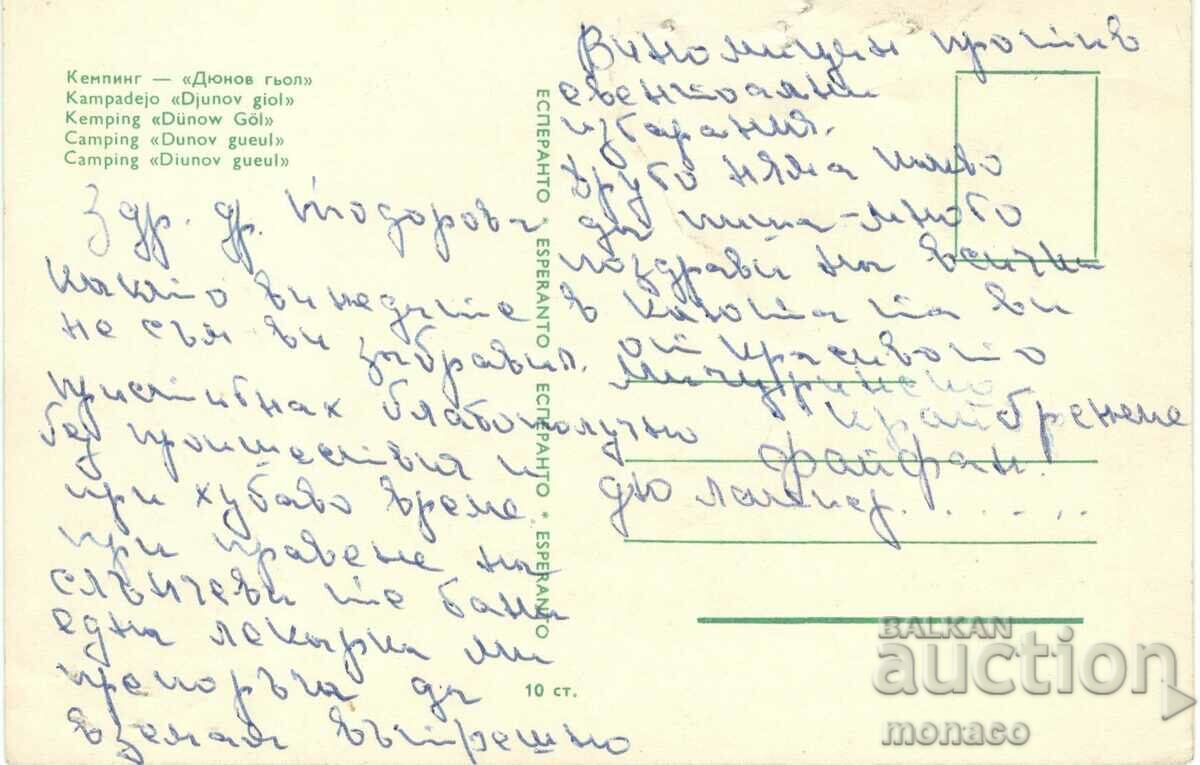 Кемпинг — «Дюнов гьол»
Kampadejo «Djunov giol»
Kemping «Dünow Göl»
Camping «Dunov gueul»
Camping «Diunov gueul»
Здр. др. Тодорова
както виждате
не съм ви забравил.
Пристигнах благополучно
без произшествия и
при хубаво време.
При правене на
слънчевите бани
една лекарка ми
препоръча да
вземам вътрешно
против
евентоални
изгаряния.
Друго няма какво
да пиша – много
поздрави на всички
в къщата ви
от красивото
Мичуринско
крайбрежие
ЕСПЕРАНТО * ESPERANTO * ЕСПЕРАНТО * ESPERANTO
10 ст.
BALKAN
auction
monaco